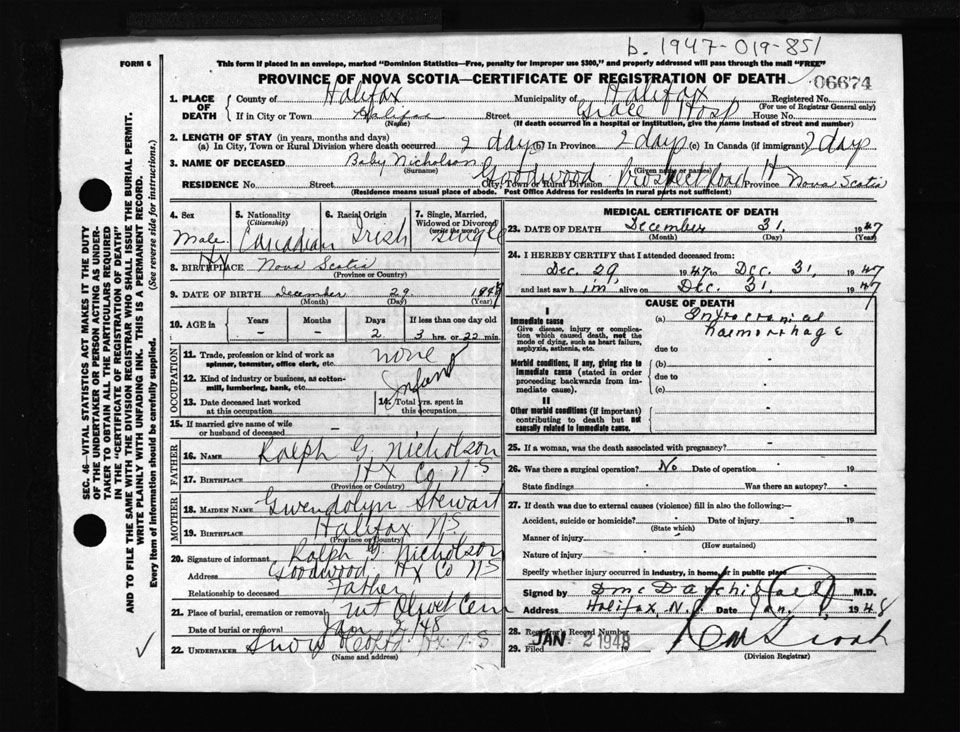 b. 1947-019-851
FORM 6
This form if placed in an envelope, marked "Dominion Statistics—Free, penalty for improper use $300," and properly addressed will pass through the mail "FREE"
PROVINCE OF NOVA SCOTIA—CERTIFICATE OF REGISTRATION OF DEATH
06674
1. PLACE OF DEATH
County of Halifax Municipality of Halifax Registered No.
(For use of Registrar General only)
If in City or Town Halifax Street Grace Hosp House No.
(If death occurred in a hospital or institution, give the name instead of street and number)
2. LENGTH OF STAY (in years, months and days)
(a) In City, Town or Rural Division where death occurred 2 days (b) In Province 2 days (c) In Canada (if immigrant) 2 days
3. NAME OF DECEASED Baby Nicholson
(Surname) (Given name or names)
RESIDENCE No. Street City, Town or Rural Division Goodwood Prospect Road Province Nova Scotia
(Residence means usual place of abode. Post Office Address for residents in rural parts not sufficient)
4. Sex
Male
5. Nationality
(Citizenship)
Canadian
6. Racial Origin
Irish
7. Single, Married, Widowed or Divorced
(write the word)
Single
8. BIRTHPLACE Hx Nova Scotia
(Province or Country)
9. DATE OF BIRTH December 29 1947
(Month) (Day) (Year)
10. AGE in
Years Months Days If less than one day old
- - 2 3 hrs. or 22 min.
OCCUPATION
11. Trade, profession or kind of work as spinner, teamster, office clerk, etc. none
12. Kind of industry or business, as cotton-mill, lumbering, bank, etc. Infant
13. Date deceased last worked at this occupation
14. Total yrs. spent in this occupation
15. If married give name of wife or husband of deceased -
FATHER
16. Name Ralph G. Nicholson
17. Birthplace Hx Co N S
(Province or Country)
MOTHER
18. Maiden Name Gwendolyn Stewart
19. Birthplace Halifax N S.
(Province or Country)
20. Signature of informant Ralph G. Nicholson
Address Goodwood. Hx Co N S
Relationship to deceased Father
21. Place of burial, cremation or removal Mt Olivet Cem
Date of burial or removal Jan 2/48
22. UNDERTAKER Snow Co Ltd Hx N S
(Name and address)
MEDICAL CERTIFICATE OF DEATH
23. DATE OF DEATH December 31. 1947
(Month) (Day) (Year)
24. I HEREBY CERTIFY that I attended deceased from:
Dec. 29, 1947 to Dec. 31, 1947
and last saw him alive on Dec. 31, 1947
CAUSE OF DEATH
I
Immediate cause
Give disease, injury or complication which caused death, not the mode of dying, such as heart failure, asphyxia, asthenia, etc.
(a) Intracranial haemorrhage
due to
Morbid conditions, if any, giving rise to immediate cause (stated in order proceeding backwards from immediate cause).
(b)
due to
(c)
II
Other morbid conditions (if important) contributing to death but not causally related to immediate cause.
25. If a woman, was the death associated with pregnancy? -
26. Was there a surgical operation? No Date of operation - 19
State findings - Was there an autopsy? -
27. If death was due to external causes (violence) fill in also the following:—
Accident, suicide or homicide? - Date of injury - 19
(State which)
Manner of injury -
(How sustained)
Nature of injury -
Specify whether injury occurred in industry, in home, or in public place
Signed by D. Mc D. Archibald M.D.
Address Halifax, N.S. Date Jan. 1 1948
28. Registrar's Record Number
29. Filed JAN 2 1948
(Division Registrar)
SEC. 46—VITAL STATISTICS ACT MAKES IT THE DUTY OF THE UNDERTAKER OR PERSON ACTING AS UNDERTAKER TO OBTAIN ALL THE PARTICULARS REQUIRED IN THE "CERTIFICATE OF REGISTRATION OF DEATH" AND TO FILE THE SAME WITH THE DIVISION REGISTRAR WHO SHALL ISSUE THE BURIAL PERMIT.
WRITE PLAINLY WITH UNFADING INK. THIS IS A PERMANENT RECORD.
Every item of information should be carefully supplied. (See reverse side for instructions.)